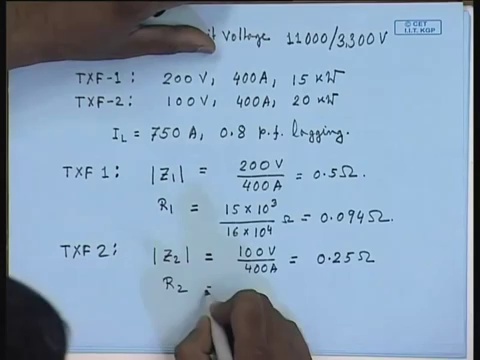 Voltage 11000/3,300V
© CET
I.I.T. KGP
TXF-1: 200 V, 400A, 15 kW
TXF-2: 100 V, 400A, 20 kW
I_L = 750 A, 0.8 p.f. lagging.
TXF 1: |Z₁| = 200 V / 400A = 0.5Ω.
R₁ = 15 × 10³ / 16 × 10⁴ Ω = 0.094Ω.
TXF 2: |Z₂| = 100V / 400A = 0.25Ω
R₂ =